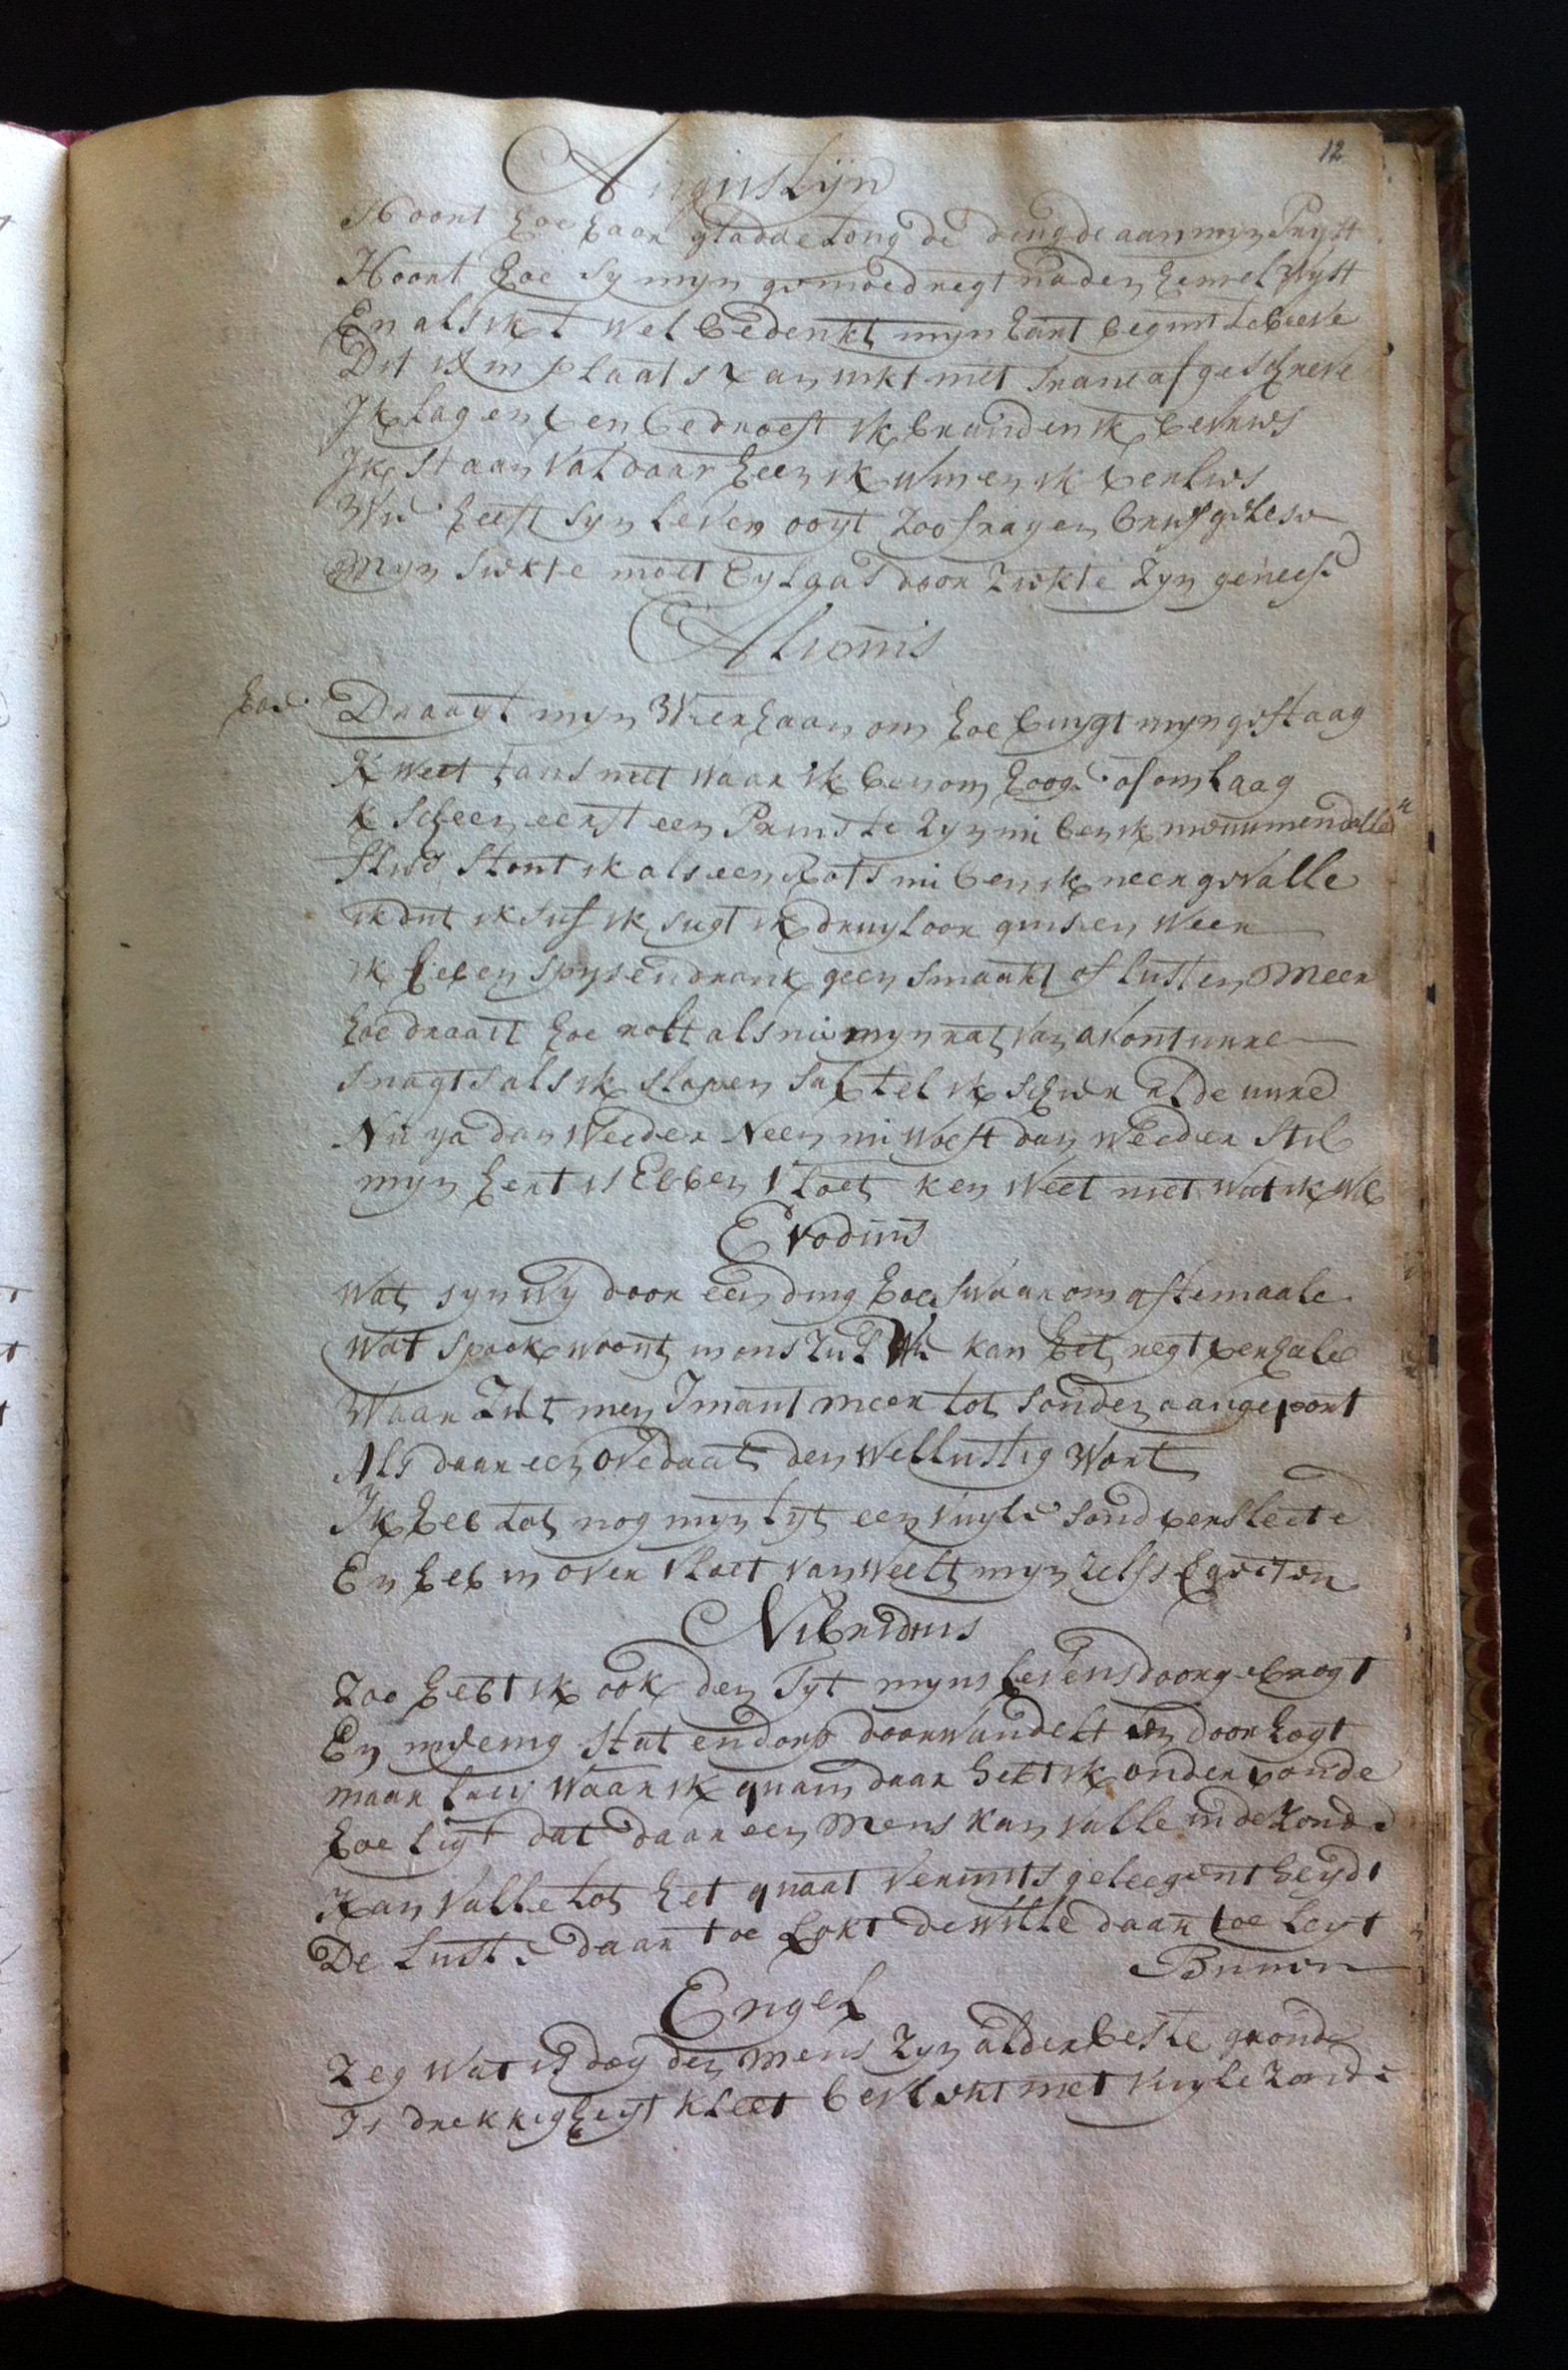 12
Augustijn
Hoort hoe haar gladde tong de deugde aan mijn Prijst
Hoort hoe sy mijn gemoed regt na den hemel wyst
En als ik t wel bedenkt mijn hant begint te beeve
Dit is in plaats van inkt met trane afgeschreve
Ik lag en ben bedroeft ik brand en ik bevries
Ik sta en val daar heen ik win en ik verlies
Wie heeft syn leven ooyt zoo fray en brief gelese
Mijn siekte moet eylaas door ziekte zyn geneese
Alionis
hoe Draayt mijn Weerhaan om hoe buygt mijn gestaag
K weet tans niet waar ik ben om hoog of om laag
k scheen eerst een Prins te zyn nu ben ik
flus stont ik als een Rots nu ben ik neer gevalle
ik dut ik suf ik sugt ik druyloor gins en weer
ik heb en spys en drank geen smaakt of lusten Meer
hoe draait hoe rolt als nu mijn rat van avonture
snagts als ik slapen sal tel ik schier al de uure
Nu ja dan weeder Neen nu woest dan weeder stil
mijn hert is Ebb en vloet ken weet niet wat ik wil
Evodius
Wat syn wy door een ding hoe swaar om af te maale
Wat spook woont in ons ziel Wie kan het regt verhale
Waar ziet men Imant meer tot sonden aangeport
Als daar een overdaat den wellustig Wort
Ik heb tot nog mijn tyt een vuyle sond versleete
En heb in over vloet van weelt mijn zelfs vergeeten
Nibridius
Zoo hebt ik ook den Tyt mijns levens doorgebragt
En menig stat en dorp doorwandelt en door
maar laes waar ik quam daar hebt ik ondervonde
hoe ligt dat daar een Mens kan valle in de Zonde
Kan valle tot het quaat vermits geleegentheydt
De Luste daar toe Lokt de wille daar toe Leyt
Binnen
Engel
Zeg wat is dog den mens Zyn alderbeste gronde
Is drekkigheyt kleet bevlekt met vuyle Zonde